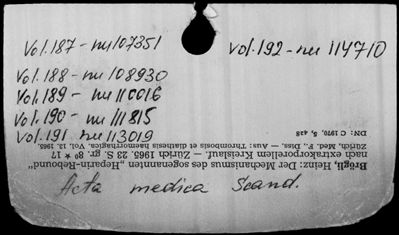 Vol. 187 - nu 107351
Vol. 192 - nu 114710
Vol. 188 - nu 108930
Vol. 189 - nu 110016
Vol. 190 - nu 111815
Vol. 191 nu 113019
Acta medica Scand.
Brägli, Heinz: Der Mechanismus des sogenannten „Heparin-Rebound"
nach extrakorporellem Kreislauf. — Zürich 1965. 23 S. gr. 8º * 17
Zürich, Med. F., Diss. — Aus: Thrombosis et diathesis haemorrhagica. Vol. 13. 1965.
DN: C 1970, 5, 428